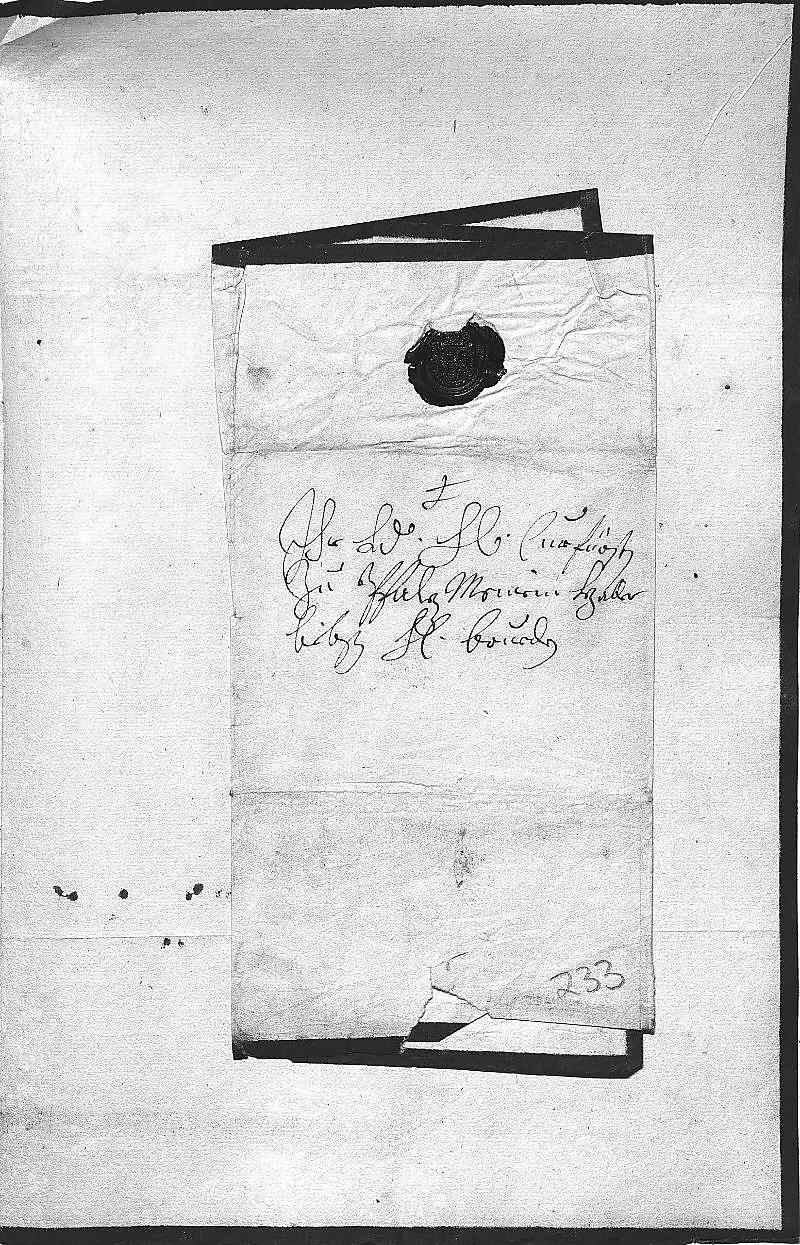 Ihr Ld. Hl. Curfürst
Zu Pfaltz Meinem
libst Hl. bruder
233